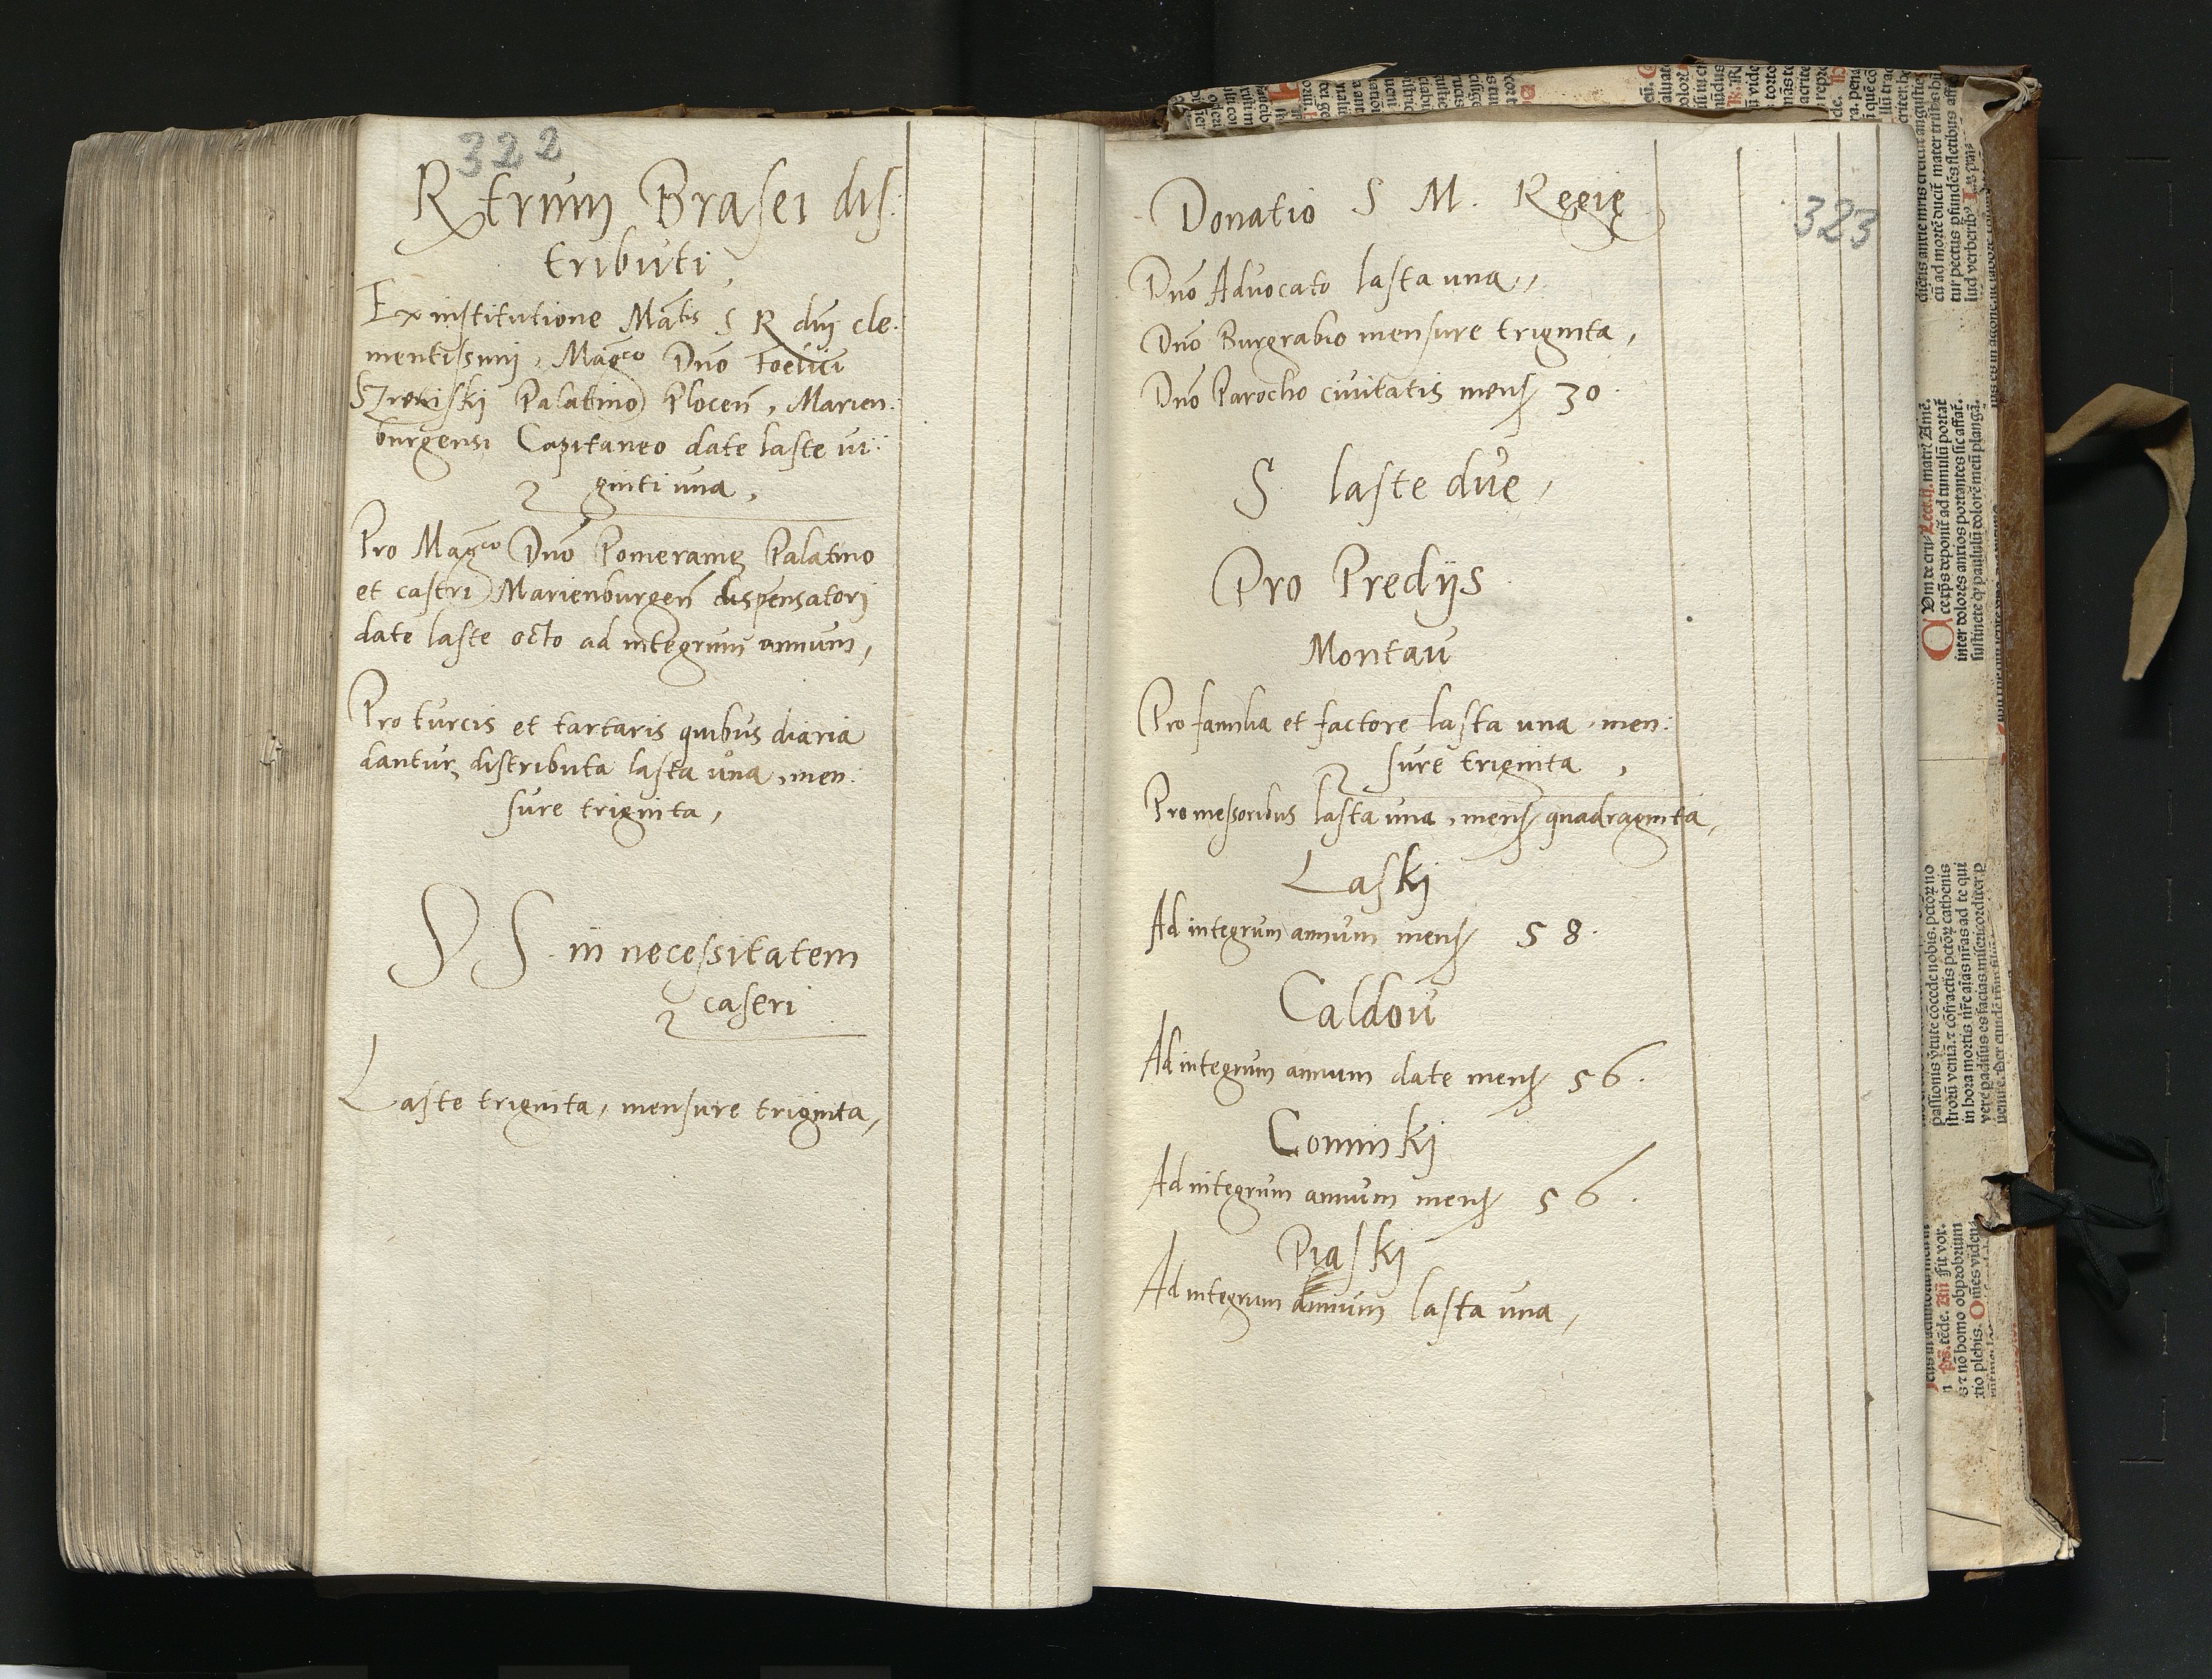 322
Rxtrum Brasei dis:
tributi
Ex institutione Matis S R dnj cle:
mentissimj, Magco Dno Foelici
Szrenskj Palatino Plocen, Marien:
burgensi Capitaneo date laste vi:
ginti una,
Pro Magco Dno Pomeranię Palatino
et castri Marienburgen dispensatorj
date laste octo ad integrum annum,
Pro turcis et tartaris quibus diaria
dantur, distributa lasta una, men:
sure triginta,
S S in necessitatem
caseri
Laste triginta, mensure triginta,
323
Donatio S M. Regię
Dno Advocato lasta una,
Dno Burgrabio mensure triginta,
Dno Parocho civitatis mens 30.
S laste duę,
Pro Predijs
Montau
Pro familia et factore lasta una, men:
sure triginta,
Pro messoribus lasta una, mens quadraginta,
Laskj
Ad integrum annum mens 58.
Caldou
Ad integrum annum date mens 56.
Cominskj
Ad integrum annum mens 56.
Piaskj
Ad integrum annum lasta una,